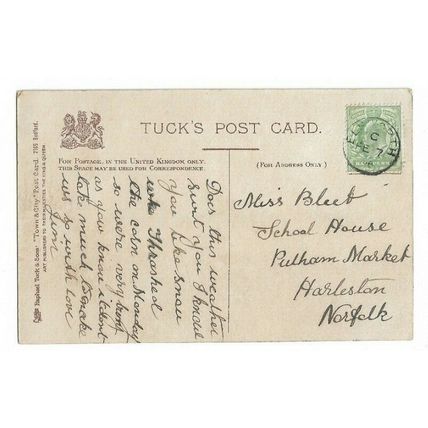 TUCK'S POST CARD.
FOR POSTAGE, IN THE UNITED KINGDOM ONLY,
THIS SPACE MAY BE USED FOR CORRESPONDENCE.
(FOR ADDRESS ONLY.)
Does this weather
suit you I know
you like snow
We Threshed
the corn on Monday
so were very busy
as you know it dont
take much to make
us so with love
Raphael Tuck & Sons' "Town & City" Post Card. 7165
ART PUBLISHERS TO THEIR MAJESTIES THE KING & QUEEN.
Miss Bleet
School House
Pulham Market
Harleston
Norfolk